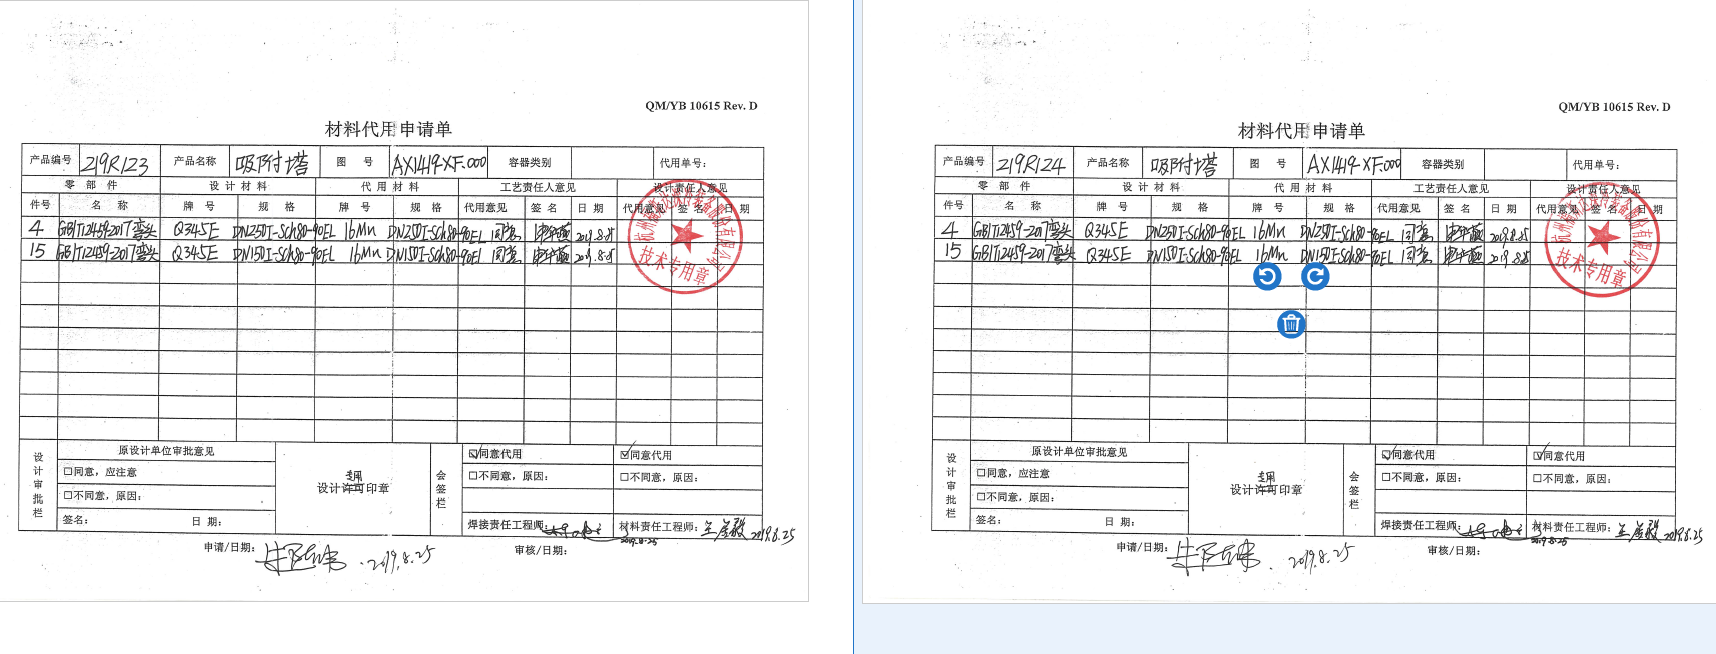 QM/YB 10615 Rev. D
材料代用申请单
产品编号 219R123 产品名称 吸附塔 图 号 AX1419-XF.000 容器类别 代用单号:
零 部 件 设 计 材 料 代 用 材 料 工艺责任人意见 设计责任人意见
件号 名 称 牌 号 规 格 牌 号 规 格 代用意见 签 名 日 期 代用意见 签 名 日 期
4 GB/T12459-2017弯头 Q345E DN250I-Sch80-90EL 16Mn DN250I-Sch80-90EL 同意 2019.8.25
15 GB/T12459-2017弯头 Q345E DN150I-Sch80-90EL 16Mn DN150I-Sch80-90EL 同意 2019.8.25
技术专用章
设计审批栏 原设计单位审批意见 会签栏 ☑同意代用 ☑同意代用
□同意，应注意 专用 □不同意，原因: □不同意，原因:
□不同意，原因: 设计许可印章
签名: 日 期: 焊接责任工程师: 2019.8.25 材料责任工程师: 2019.8.25
申请/日期: 2019.8.25 审核/日期:
QM/YB 10615 Rev. D
材料代用申请单
产品编号 219R124 产品名称 吸附塔 图 号 AX1419-XF.000 容器类别 代用单号:
零 部 件 设 计 材 料 代 用 材 料 工艺责任人意见 设计责任人意见
件号 名 称 牌 号 规 格 牌 号 规 格 代用意见 签 名 日 期 代用意见 签 名 日 期
4 GB/T12459-2017弯头 Q345E DN250I-Sch80-90EL 16Mn DN250I-Sch80-90EL 同意 2019.8.25
15 GB/T12459-2017弯头 Q345E DN150I-Sch80-90EL 16Mn DN150I-Sch80-90EL 同意 2019.8.25
技术专用章
设计审批栏 原设计单位审批意见 会签栏 ☑同意代用 ☑同意代用
□同意，应注意 专用 □不同意，原因: □不同意，原因:
□不同意，原因: 设计许可印章
签名: 日 期: 焊接责任工程师: 2019.8.25 材料责任工程师: 2019.8.25
申请/日期: 2019.8.25 审核/日期: